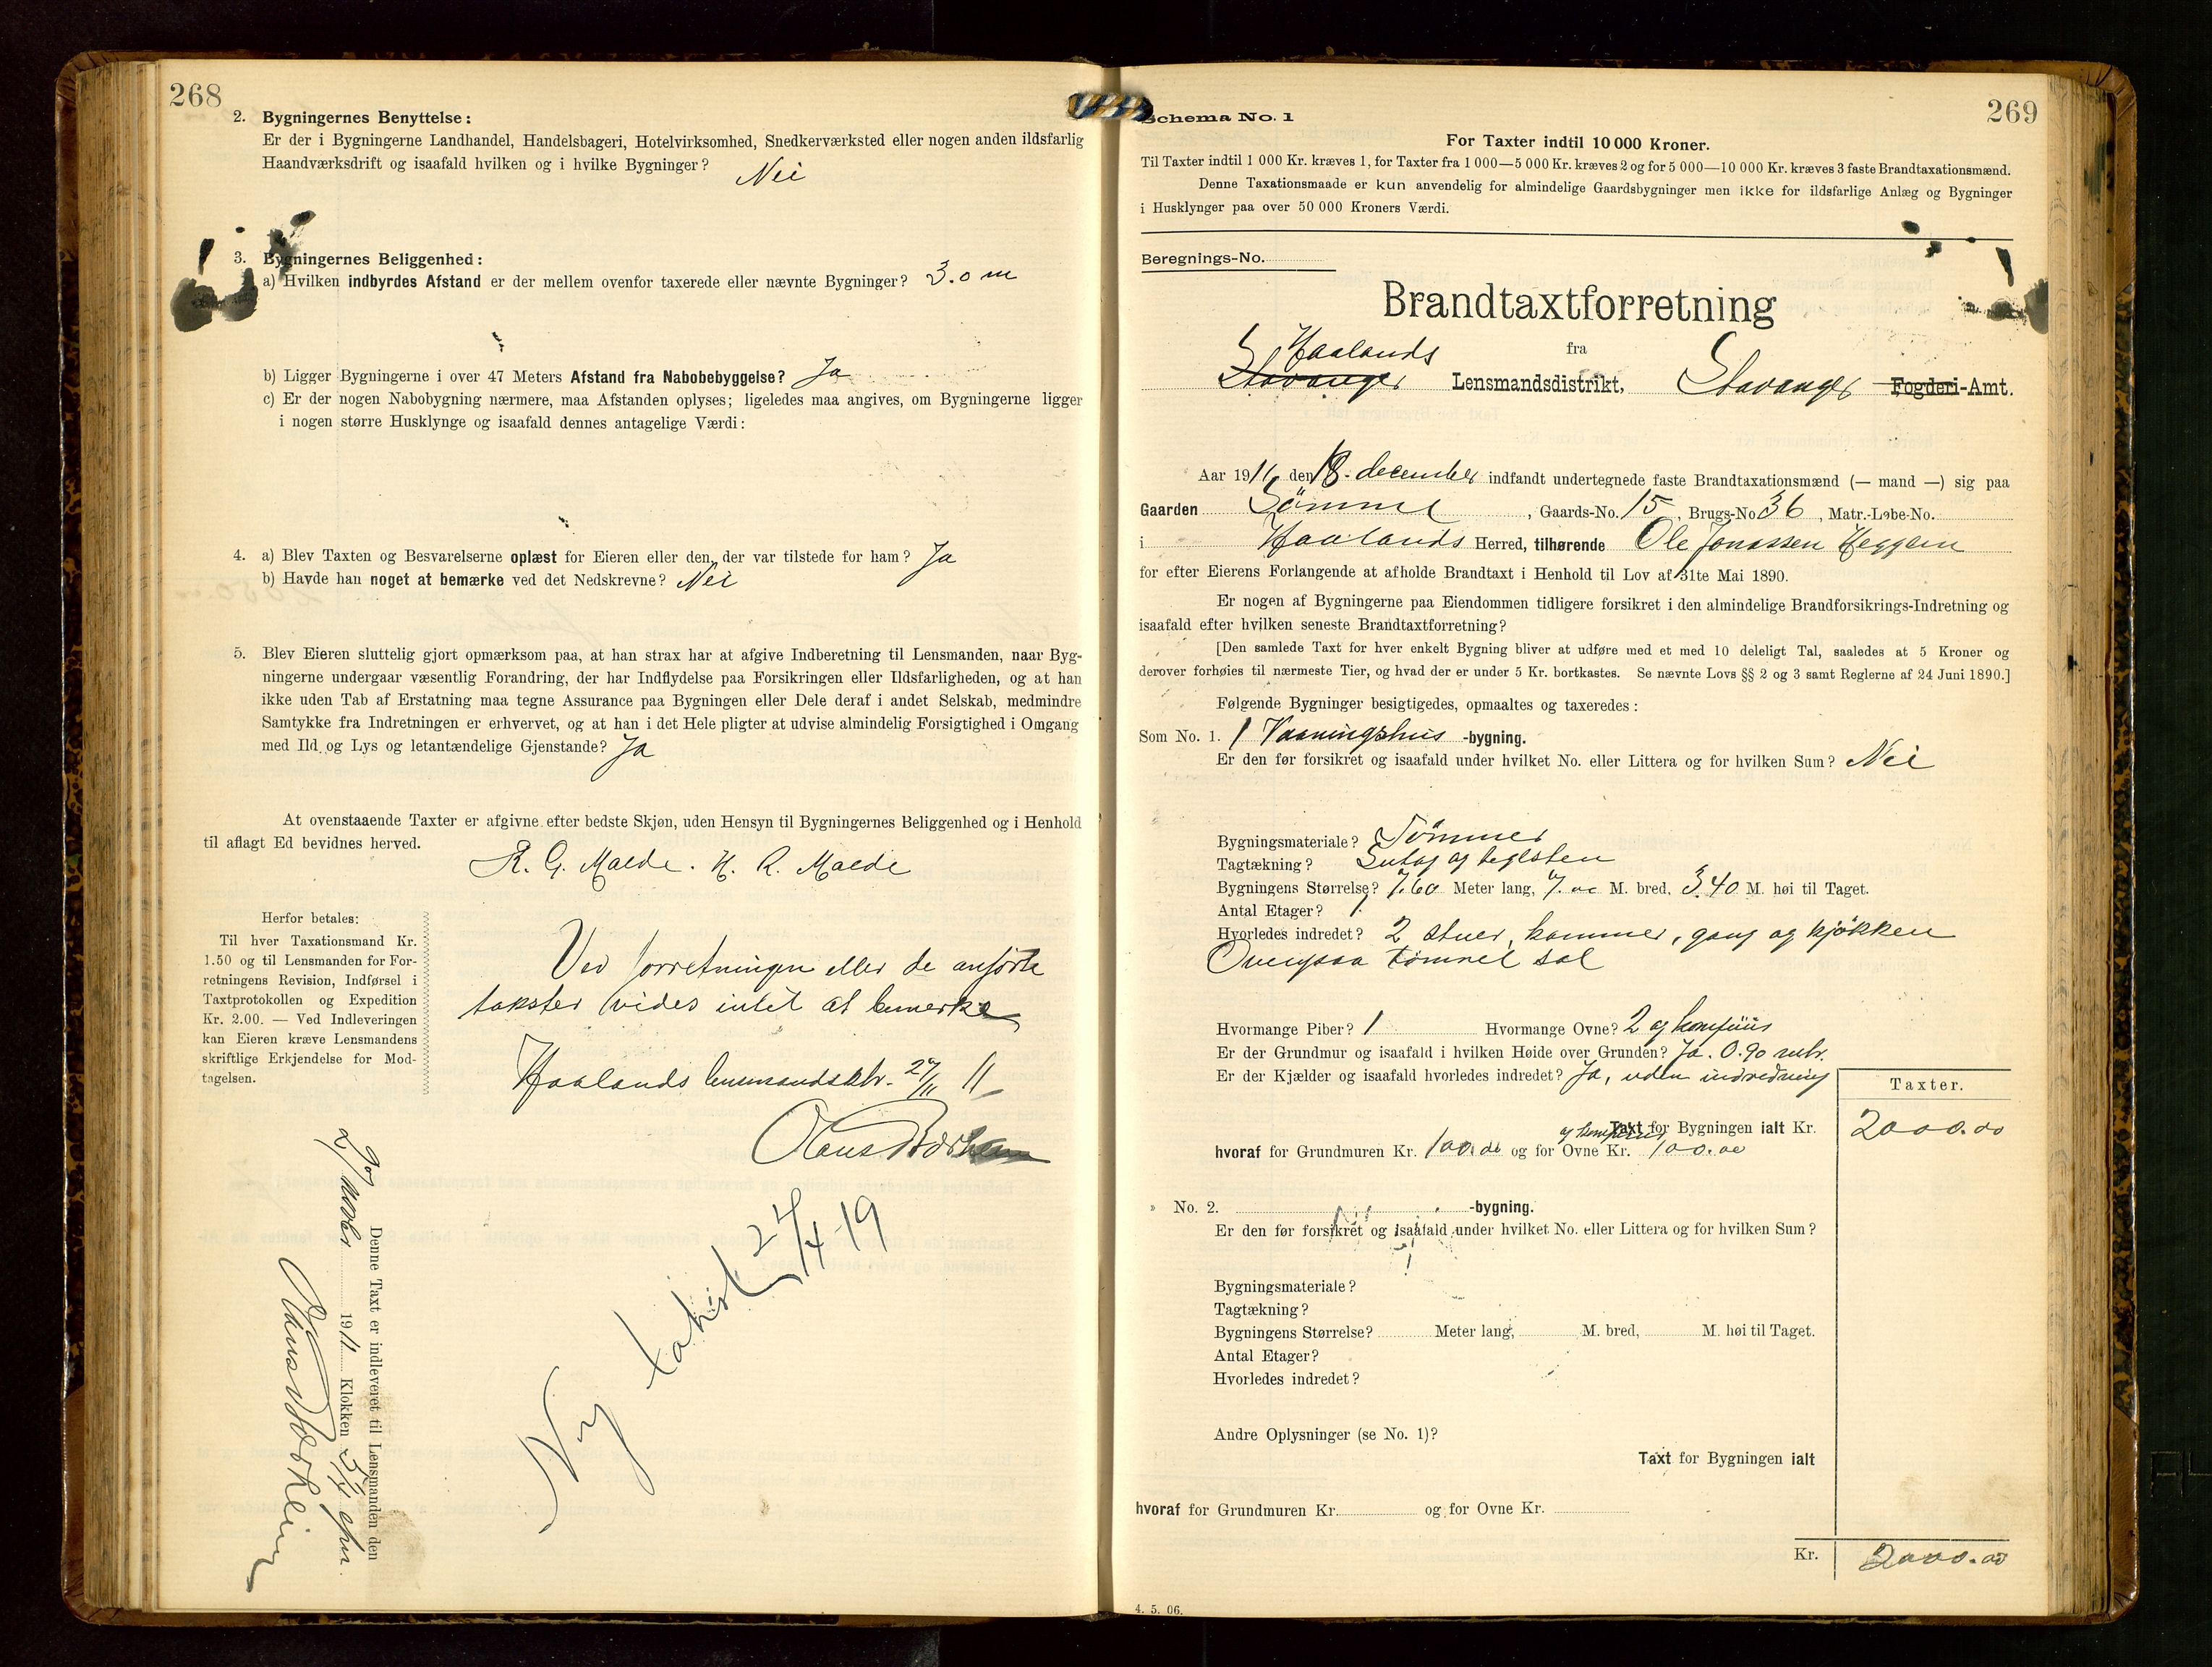 268
2. Bygningernes Benyttelse:
Er der i Bygningerne Landhandel, Handelsbageri, Hotelvirksomhed, Snedkerværksted eller nogen anden ildsfarlig
Haandværksdrift og isaafald hvilken og i hvilke Bygninger? Nei
3. Bygningernes Beliggenhed:
a) Hvilken indbyrdes Afstand er der mellem ovenfor taxerede eller nævnte Bygninger? 3.0 m
b) Ligger Bygningerne i over 47 Meters Afstand fra Nabobebyggelse? Ja
c) Er der nogen Nabobygning nærmere, maa Afstanden oplyses; ligeledes maa angives, om Bygningerne ligger
i nogen større Husklynge og isaafald dennes antagelige Værdi:
4. a) Blev Taxten og Besvarelserne oplæst for Eieren eller den, der var tilstede for ham? Ja
b) Havde han noget at bemærke ved det Nedskrevne? Nei
5. Blev Eieren sluttelig gjort opmærksom paa, at han strax har at afgive Indberetning til Lensmanden, naar Byg-
ningerne undergaar væsentlig Forandring, der har Indflydelse paa Forsikringen eller Ildsfarligheden, og at han
ikke uden Tab af Erstatning maa tegne Assurance paa Bygningen eller Dele deraf i andet Selskab, medmindre
Samtykke fra Indretningen er erhvervet, og at han i det Hele pligter at udvise almindelig Forsigtighed i Omgang
med Ild og Lys og letantændelige Gjenstande? Ja
At ovenstaaende Taxter er afgivne efter bedste Skjøn, uden Hensyn til Bygningernes Beliggenhed og i Henhold
til aflagt Ed bevidnes herved.
R. G. Malde. H. R. Malde
Herfor betales:
Til hver Taxationsmand Kr.
1.50 og til Lensmanden for For-
retningens Revision, Indførsel i
Taxtprotokollen og Expedition
Kr. 2.00. — Ved Indleveringen
kan Eieren kræve Lensmandens
skriftlige Erkjendelse for Mod-
tagelsen.
Ved forretningen eller de anførte
takster vides intet at bemerke
Haalands lensmandsktr. 27/11 11
Denne Taxt er indleveret til Lensmanden den
1911 Klokken
Ny takst 24/4 19
269
Schema No. 1
For Taxter indtil 10 000 Kroner.
Til Taxter indtil 1 000 Kr. kræves 1, for Taxter fra 1 000—5 000 Kr. kræves 2 og for 5 000—10 000 Kr. kræves 3 faste Brandtaxationsmænd.
Denne Taxationsmaade er kun anvendelig for almindelige Gaardsbygninger men ikke for ildsfarlige Anlæg og Bygninger
i Husklynger paa over 50 000 Kroners Værdi.
Beregnings-No.
Brandtaxtforretning
fra
Haalands
Stavanger Lensmandsdistrikt, Stavanger Fogderi-Amt.
Aar 1911 den 18. december indfandt undertegnede faste Brandtaxationsmænd (— mand —) sig paa
Gaarden Sømme, Gaards-No. 15, Brugs-No 36, Matr.-Løbe-No.
i Haalands Herred, tilhørende Ole Jonassen Heggem
for efter Eierens Forlangende at afholde Brandtaxt i Henhold til Lov af 31te Mai 1890.
Er nogen af Bygningerne paa Eiendommen tidligere forsikret i den almindelige Brandforsikrings-Indretning og
isaafald efter hvilken seneste Brandtaxtforretning?
[Den samlede Taxt for hver enkelt Bygning bliver at udføre med et med 10 deleligt Tal, saaledes at 5 Kroner og
derover forhøies til nærmeste Tier, og hvad der er under 5 Kr. bortkastes. Se nævnte Lovs §§ 2 og 3 samt Reglerne af 24 Juni 1890.]
Følgende Bygninger besigtigedes, opmaaltes og taxeredes:
Som No. 1. 1 Vaaningshus -bygning.
Er den før forsikret og isaafald under hvilket No. eller Littera og for hvilken Sum? Nei
Bygningsmateriale? Tømmer
Tagtækning? Sutag og teglsten
Bygningens Størrelse? 7.60 Meter lang, 7.00 M. bred, 3.40 M. høi til Taget.
Antal Etager? 1
Hvorledes indredet? 2 stuer, kammer, gang og kjøkken
Ovenpaa tømret sal
Hvormange Piber? 1 Hvormange Ovne? 2 og komfuur
Er der Grundmur og isaafald i hvilken Høide over Grunden? Ja. 0.90 mtr.
Er der Kjælder og isaafald hvorledes indredet? Ja, uden indredning
Taxter.
Taxt for Bygningen ialt Kr. 2000.00
og komfuur
hvoraf for Grundmuren Kr. 100.00 og for Ovne Kr. 100.00
» No. 2. -bygning.
Er den før forsikret og isaafald under hvilket No. eller Littera og for hvilken Sum?
Bygningsmateriale?
Tagtækning?
Bygningens Størrelse? Meter lang, M. bred, M. høi til Taget.
Antal Etager?
Hvorledes indredet?
Andre Oplysninger (se No. 1)?
Taxt for Bygningen ialt
hvoraf for Grundmuren Kr. og for Ovne Kr.
Kr. 2000.00
4. 5. 06.